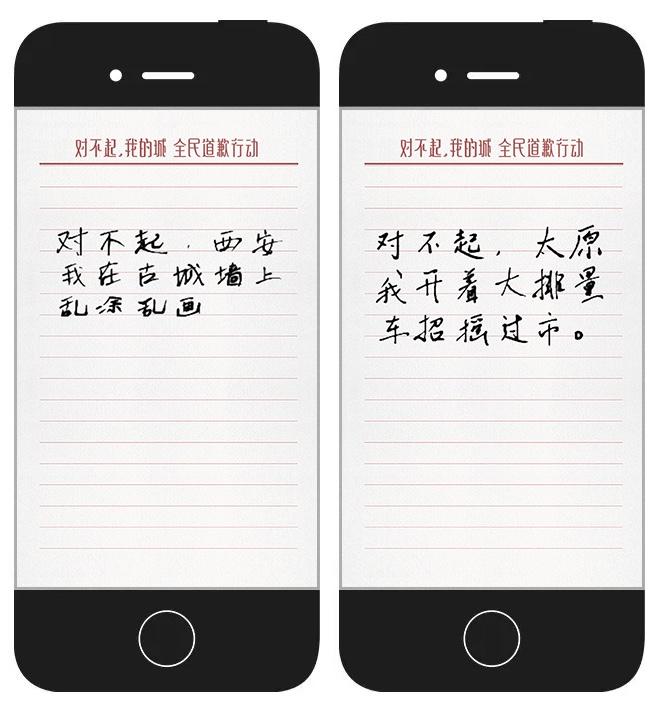 对不起,我的城 全民道歉行动
对不起，西安
我在古城墙上
乱涂乱画
对不起,我的城 全民道歉行动
对不起，太原
我开着大排量
车招摇过市。